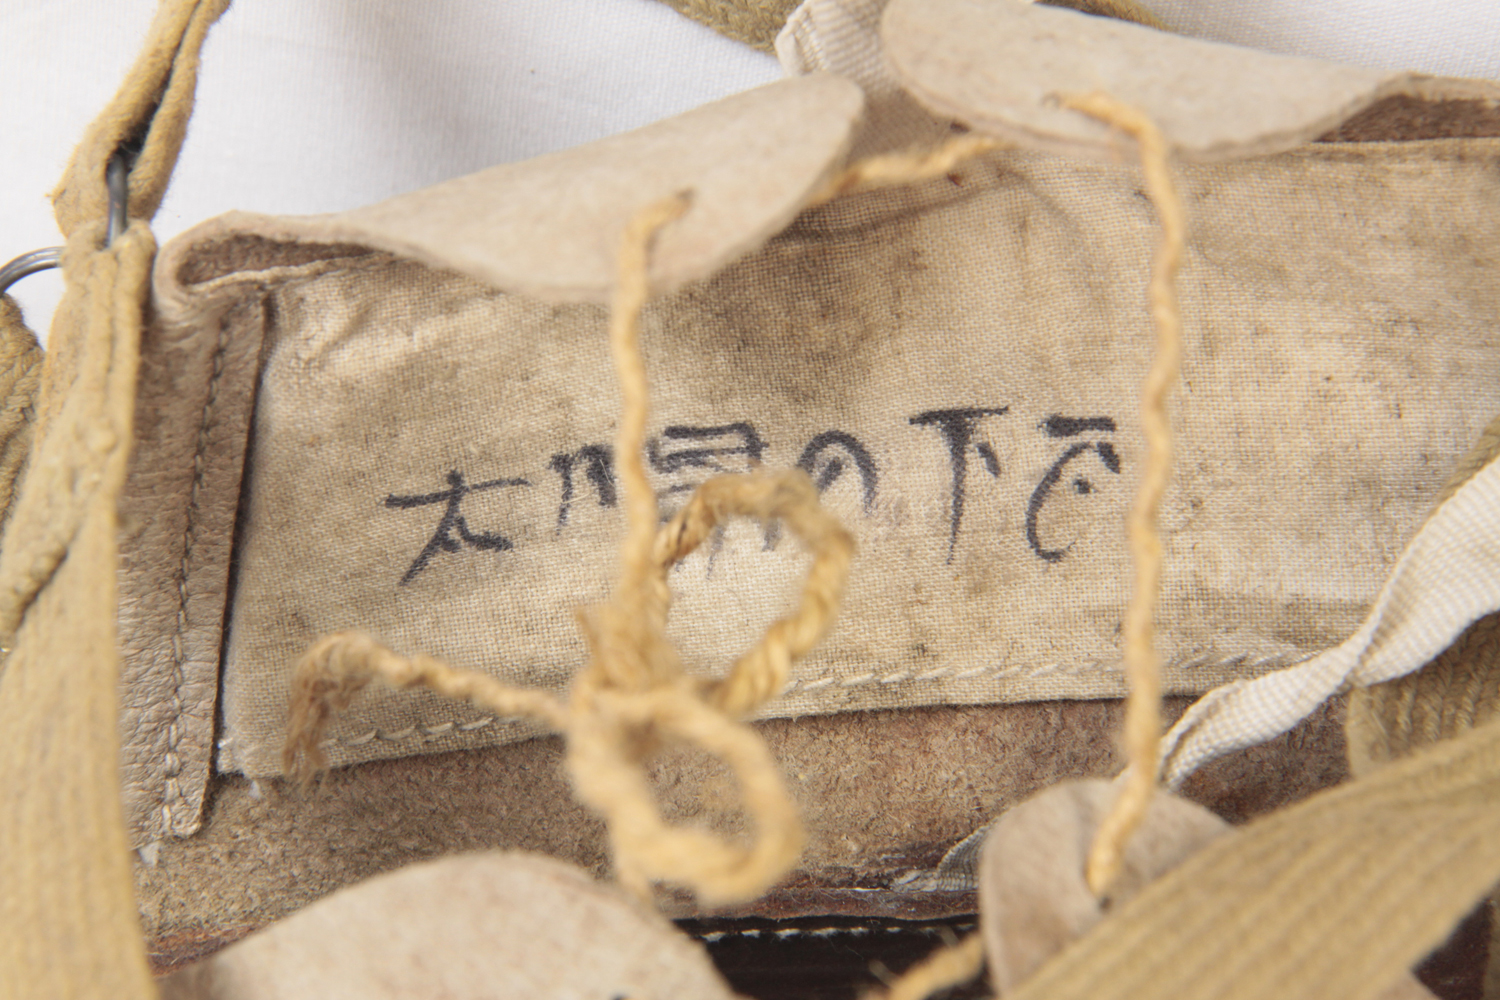 太陽の下で